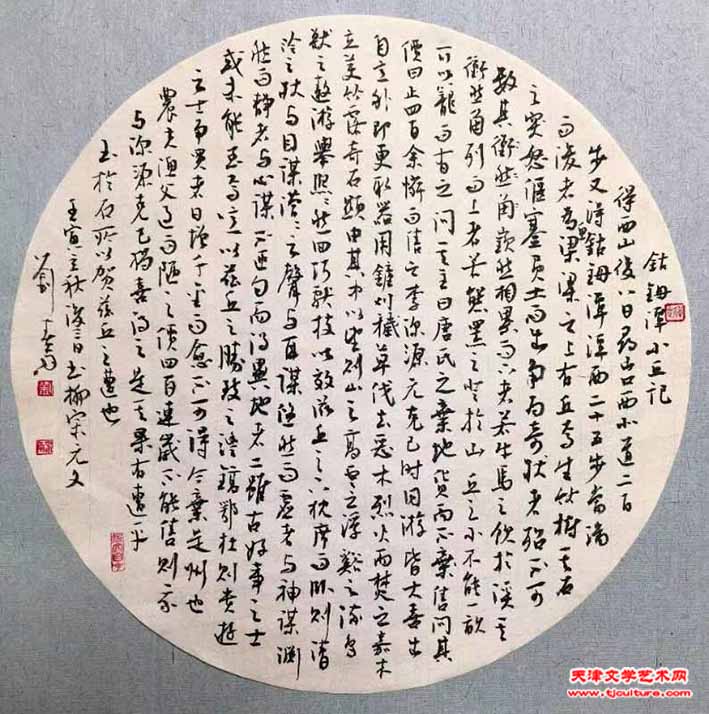 钴鉧潭小丘记
得西山後八日尋山口西北道二百
步又得钴鉧潭潭西二十五步當湍
而浚者為梁梁之上有丘焉生竹樹其石
之突怒偃蹇負土而出爭為奇狀者殆不可
數其衝然角嵚然相累而下者若牛馬之飲於溪其
衝然角列而上者若熊羆之登於山丘之小不能一畝
可以籠而有之問其主曰唐氏之棄地貨而不售問其
價曰止四百余憐而售之李深源元克己時同游皆大喜出
自意外即更取器用鏟刈穢草伐去惡木烈火而焚之嘉木
立美竹露奇石顯由其中以望則山之高雲之浮谿之流鳥
獸之遨游舉熙熙然回巧獻技以效兹丘之下枕席而卧則清
泠之狀与目謀瀯瀯之聲与耳謀悠然而虛者与神謀淵
然而靜者与心謀不匝旬而得異地者二雖古好事之士
或未能至焉噫以兹丘之勝致之灃鎬鄠杜則贵游
之士争買者日增千金而愈不可得今棄是州也
農夫漁父過而陋之價四百連歲不能售則我
与深源克己獨喜得之是其果有遭乎
书於石所以賀兹丘之遭也
壬寅立秋後三日书柳宗元文
天津文学艺术网
www.tjculture.com